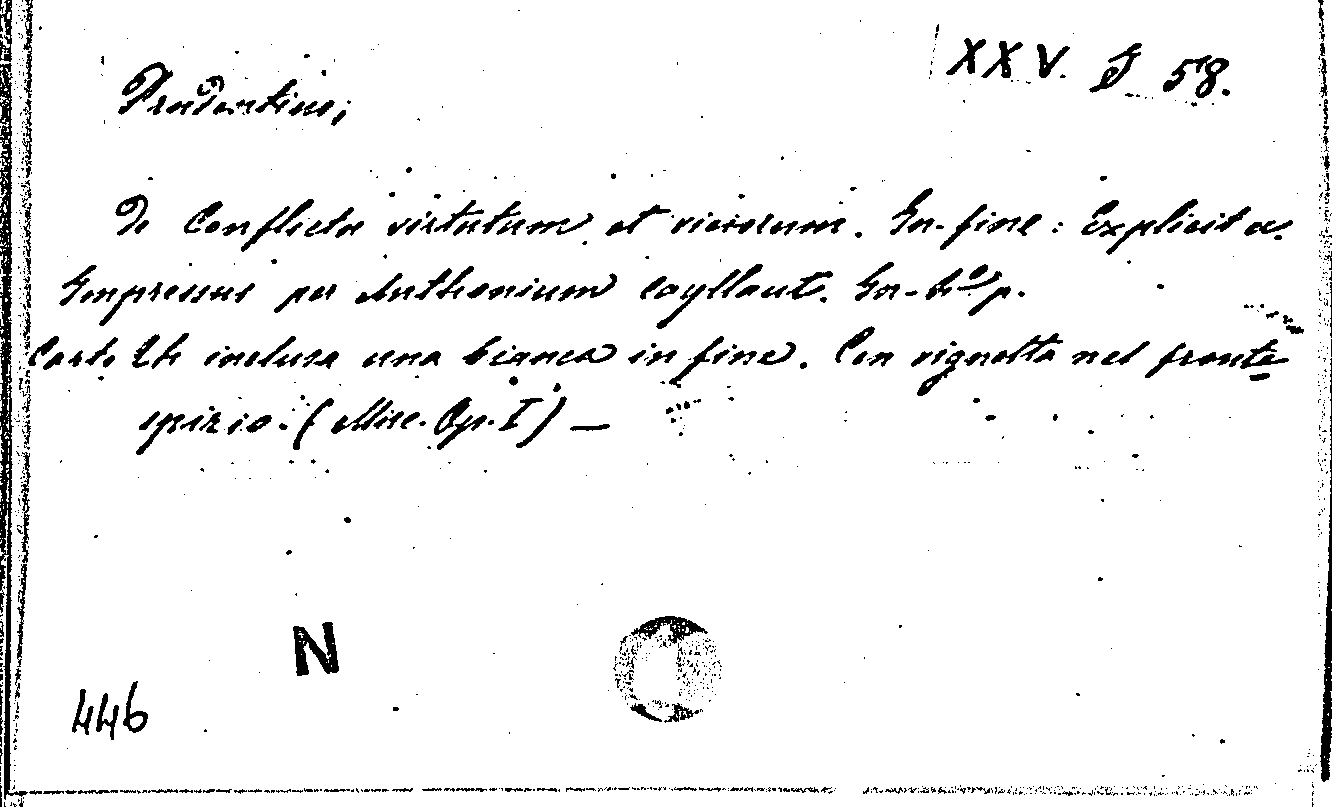 XXV. J 58.
Prudentius,
De Conflictu virtutum et viciorum. In-fine: Explicit &.
Impressus per Anthonium Cayllaut. In-4º p.
Carte 24 inclusa una bianca in fine. Con vignetta nel fronte=
spizio. (Misc. Op. I) —
N
446